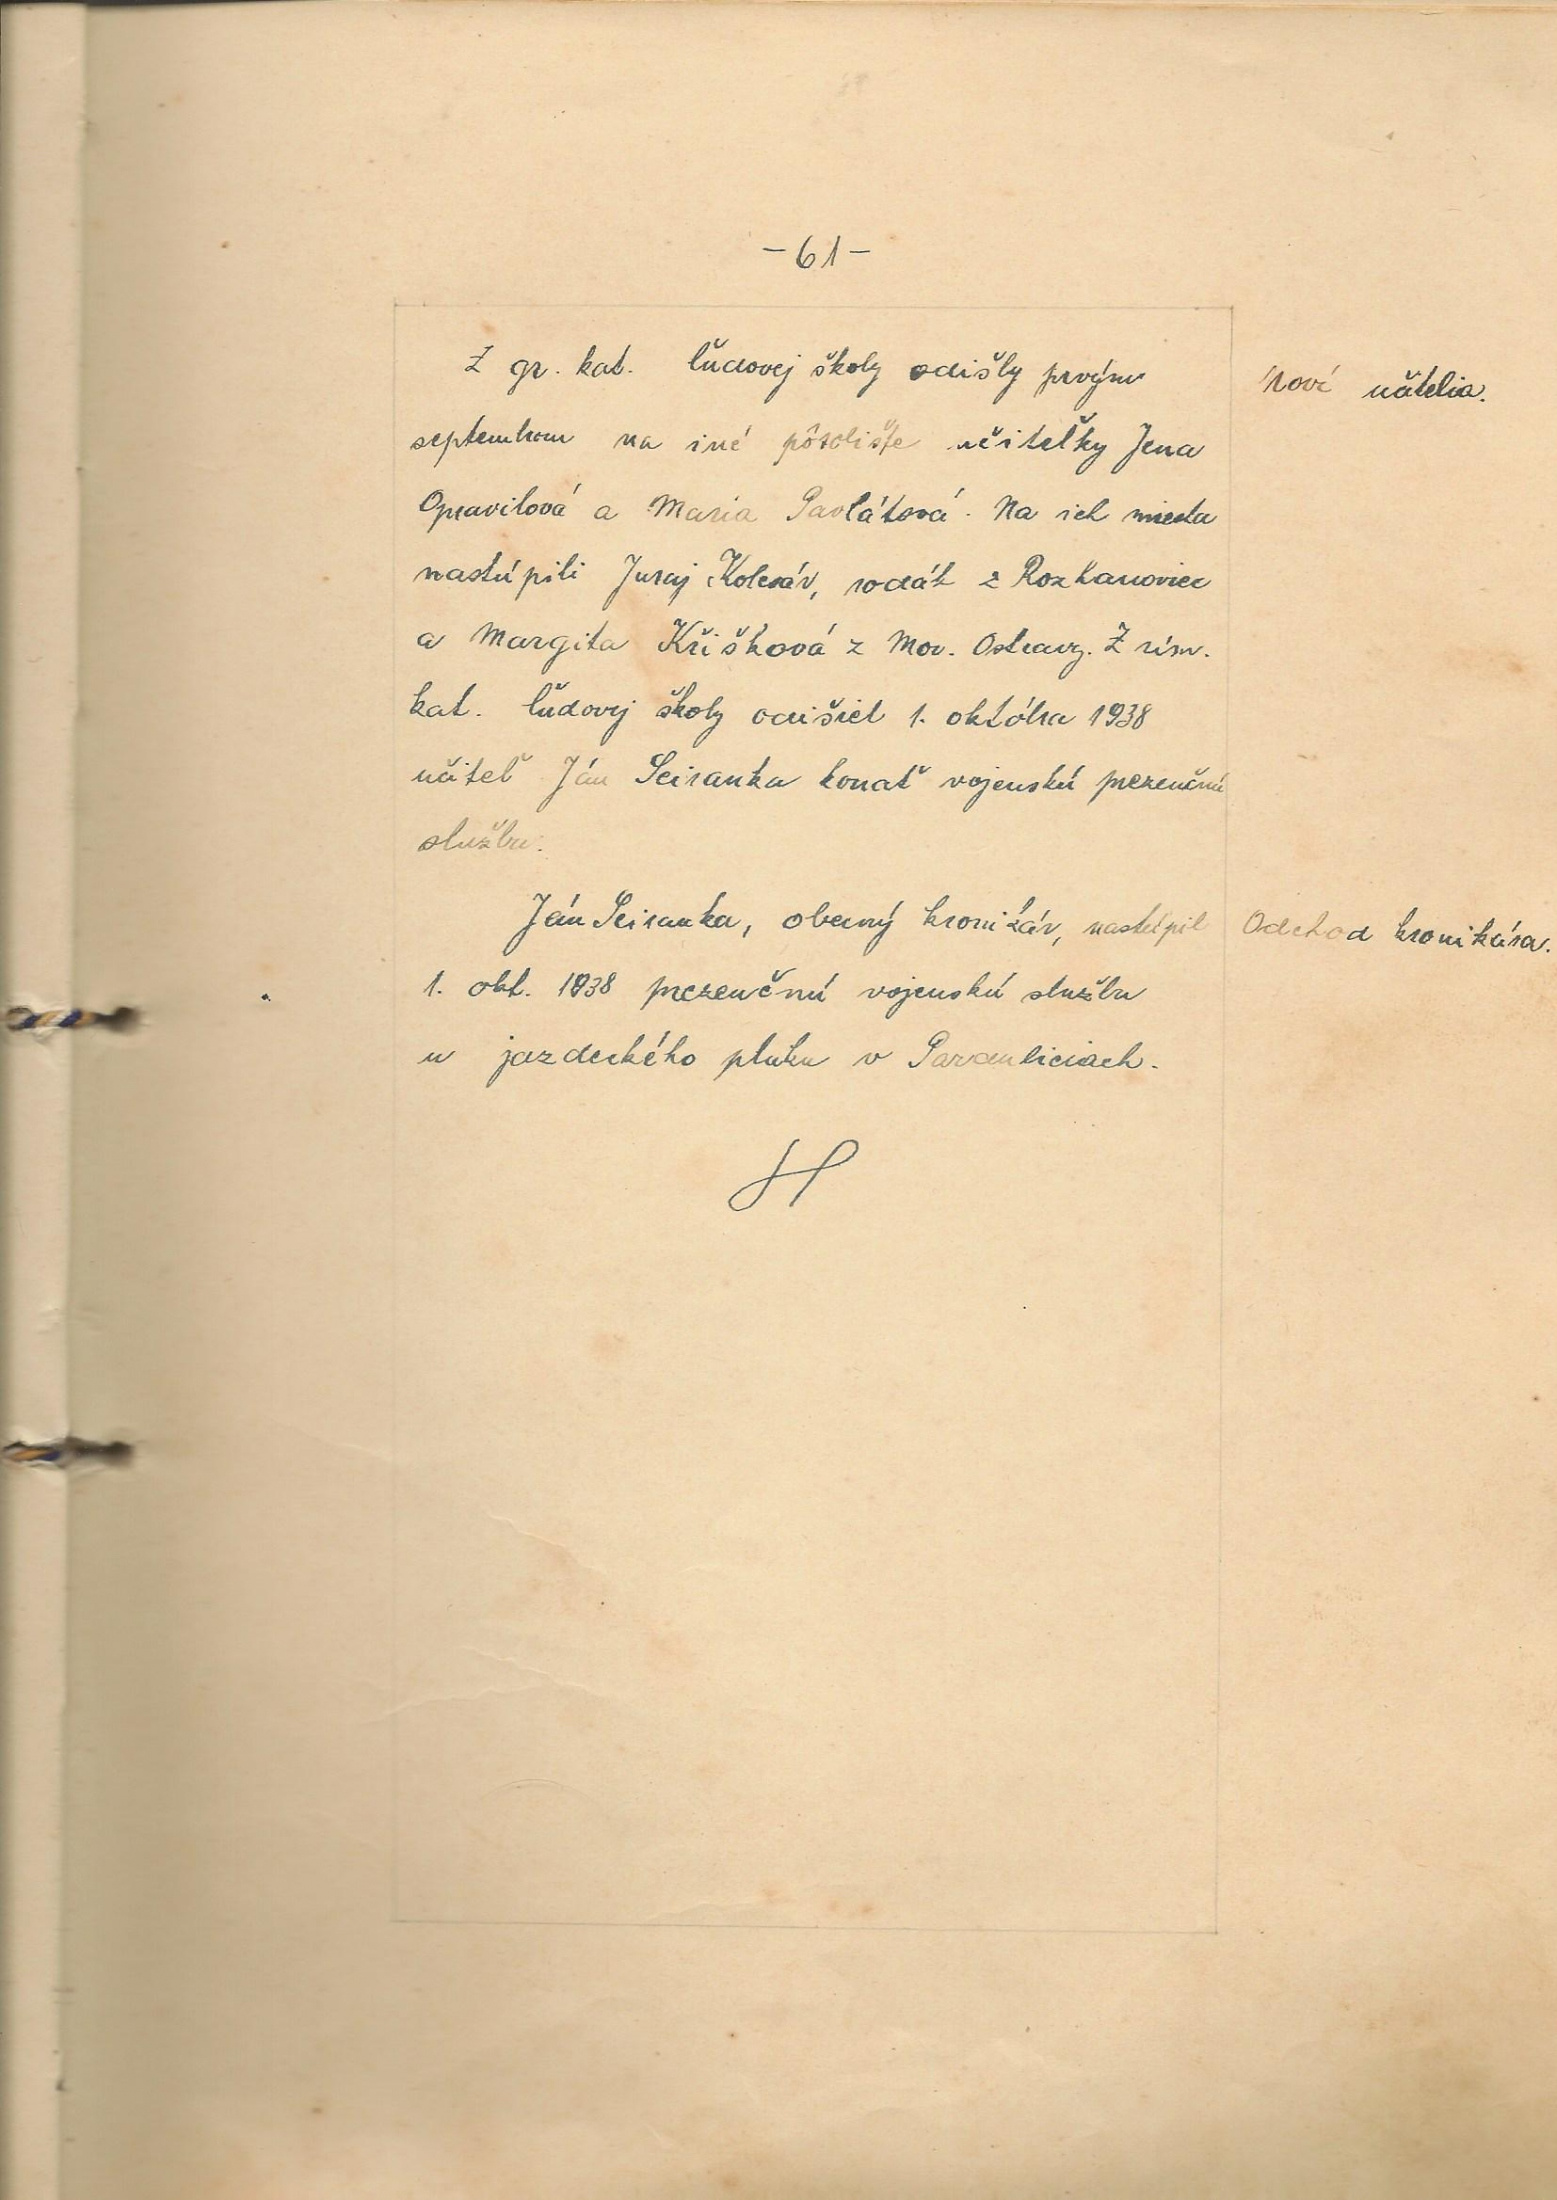 -61-
Z gr. kat. ľudovej školy odišly prvým
Noví učitelia.
septembrom na iné pôsobište učiteľky Jena
Opravilová a Maria Pavlátová. Na ich miesta
nastúpili Juraj Kolesár, rodák z Rozhanoviec
a Margita Křišková z Mor. Ostravy. Z rím.
kat. ľudovej školy odišiel 1. októbra 1938
učiteľ Ján Sciranka konať vojenskú prezenčnú
službu.
Ján Sciranka, obecný kronikár, nastúpil
Odchod kronikára.
1. okt. 1938 prezenčnú vojenskú službu
u jazdeckého pluku v Parduliciach.